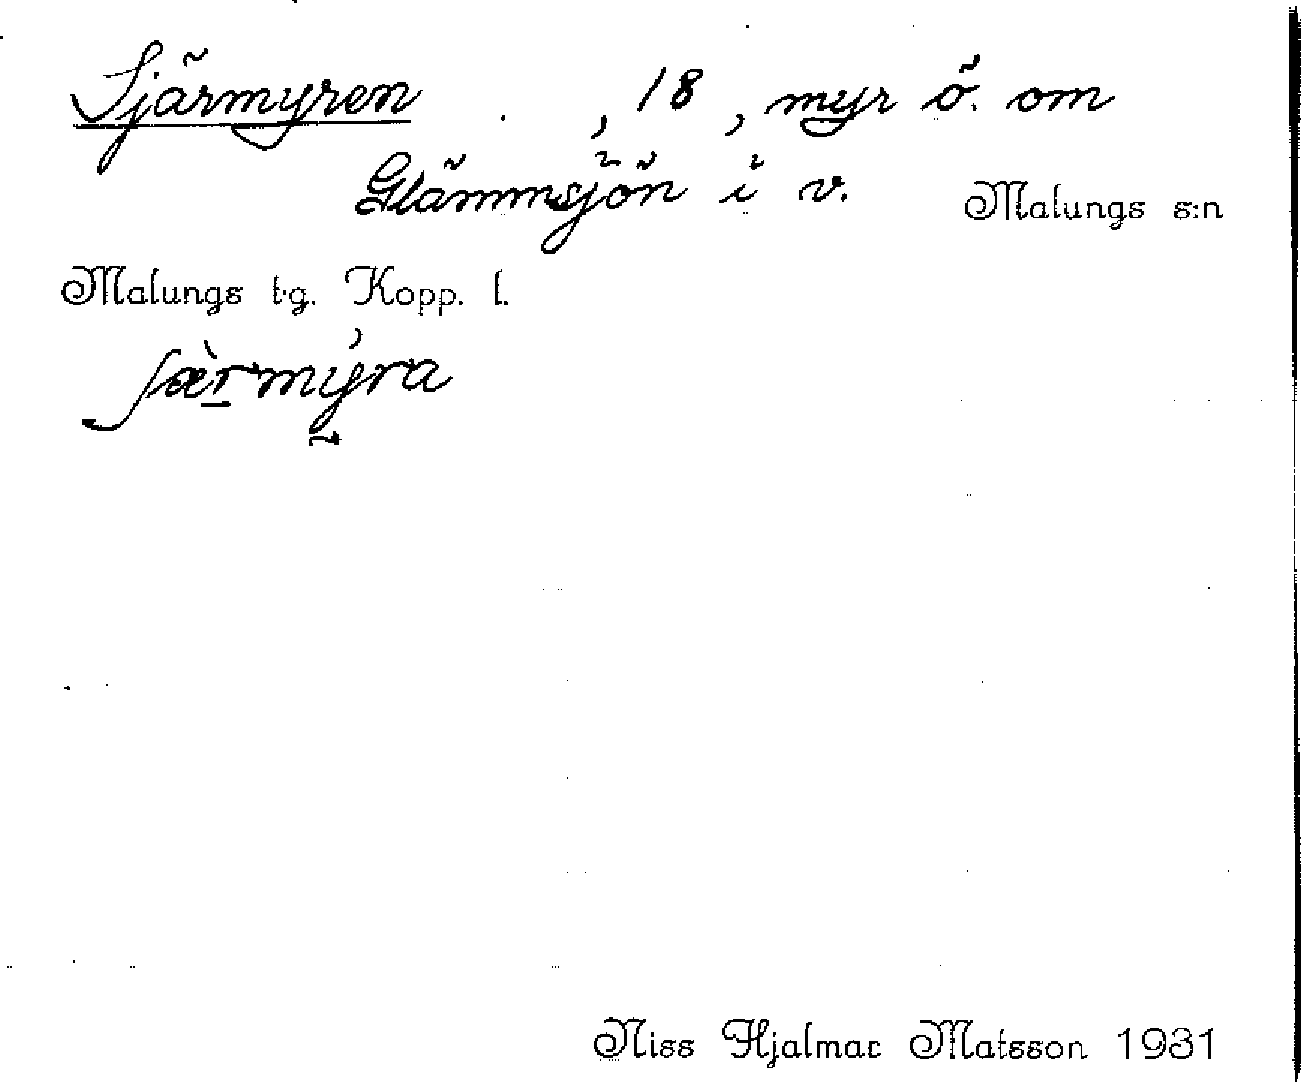 Sjärmyren , 18 , myr ö. om
Glämmsjön i v. Malungs s:n
Malungs t.g. Kopp. l.
ʃæ̀rmýra
Niss Hjalmar Matsson 1931